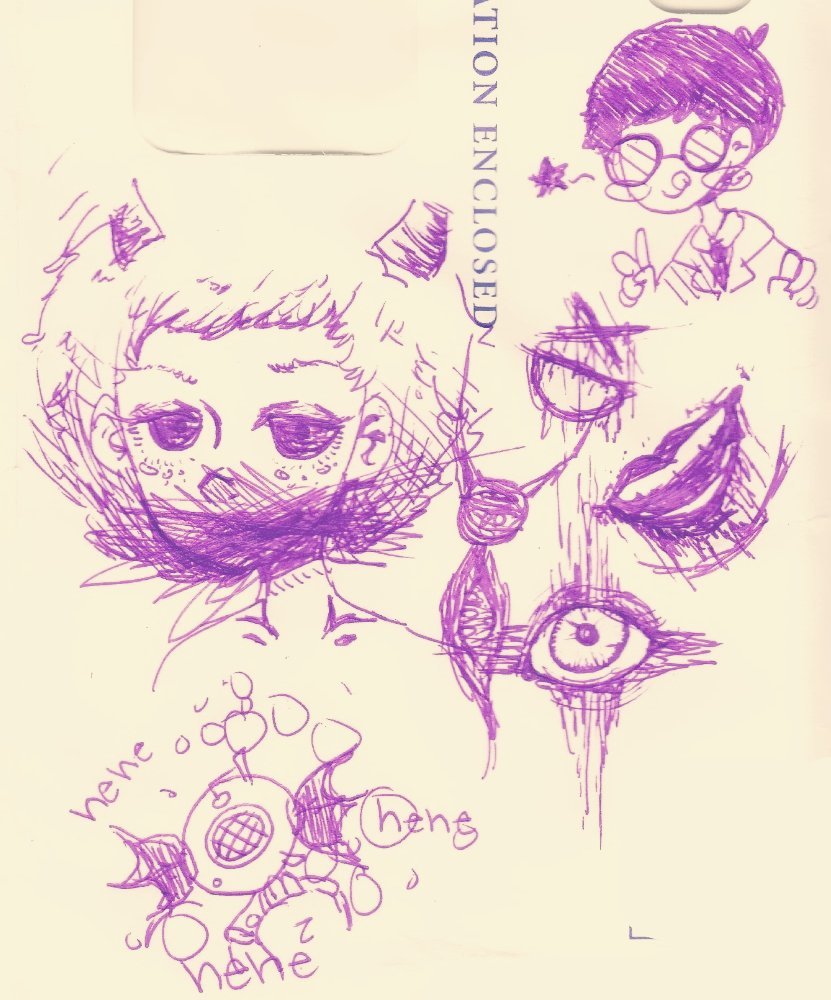 ATION ENCLOSED
hehe
hehe
hehe